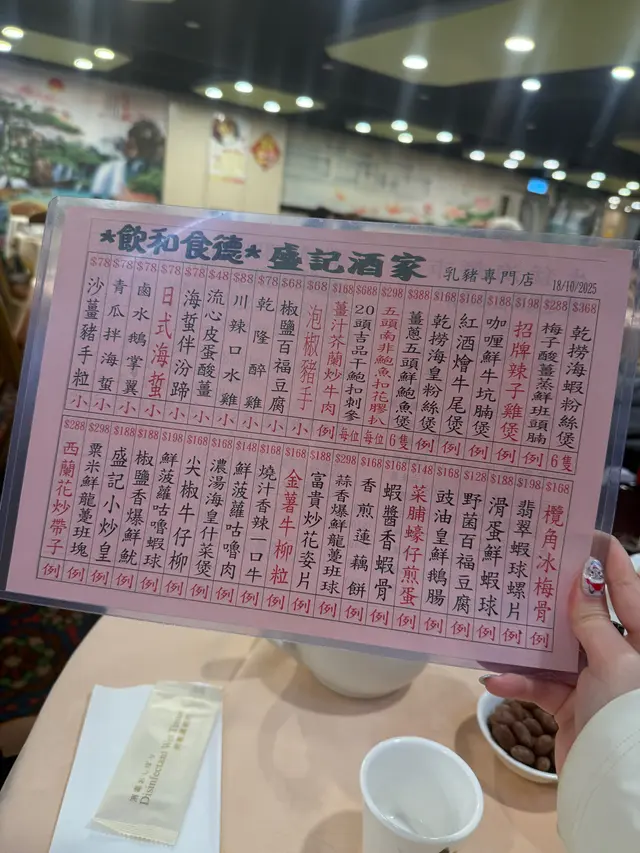 *飲和食德* 盛記酒家 乳豬專門店 18/10/2025
$368 乾撈海蝦粉絲煲 6隻
$288 梅子酸薑蒸鮮班頭腩 例
$198 招牌辣子雞煲 例
$188 咖喱鮮牛坑腩煲 例
$168 紅酒燴牛尾煲 例
$168 乾撈海皇粉絲煲 例
$388 薑蔥五頭鮮鮑魚煲 6隻
$298 五頭南非鮑魚扣花膠扒 每位
$688 20頭吉品干鮑扣刺參 每位
$168 薑汁芥蘭炒牛肉 例
$68 泡椒豬手 小
$68 椒鹽百福豆腐 小
$78 乾隆醉雞 小
$88 川辣口水雞 小
$48 流心皮蛋酸薑 小
$78 海蜇伴汾蹄 小
$78 日式海蜇 小
$78 鹵水鵝掌翼 小
$78 青瓜拌海蜇 小
$78 沙薑豬手粒 小
$168 欖角冰梅骨 例
$198 翡翠蝦球螺片 例
$188 滑蛋鮮蝦球 例
$128 野菌百福豆腐 例
$168 豉油皇鮮鵝腸 例
$148 菜脯蠔仔煎蛋 例
$168 蝦醬香蝦骨 例
$168 香煎蓮藕餅 例
$298 蒜香爆鮮龍躉班球 例
$188 富貴炒花姿片 例
$168 金薯牛柳粒 例
$168 燒汁香辣一口牛 例
$148 鮮菠蘿咕嚕肉 例
$168 濃湯海皇什菜煲 例
$168 尖椒牛仔柳 例
$198 鮮菠蘿咕嚕蝦球 例
$188 椒鹽香爆鮮魷 例
$188 盛記小炒皇 例
$298 粟米鮮龍躉班塊 例
$288 西蘭花炒帶子 例